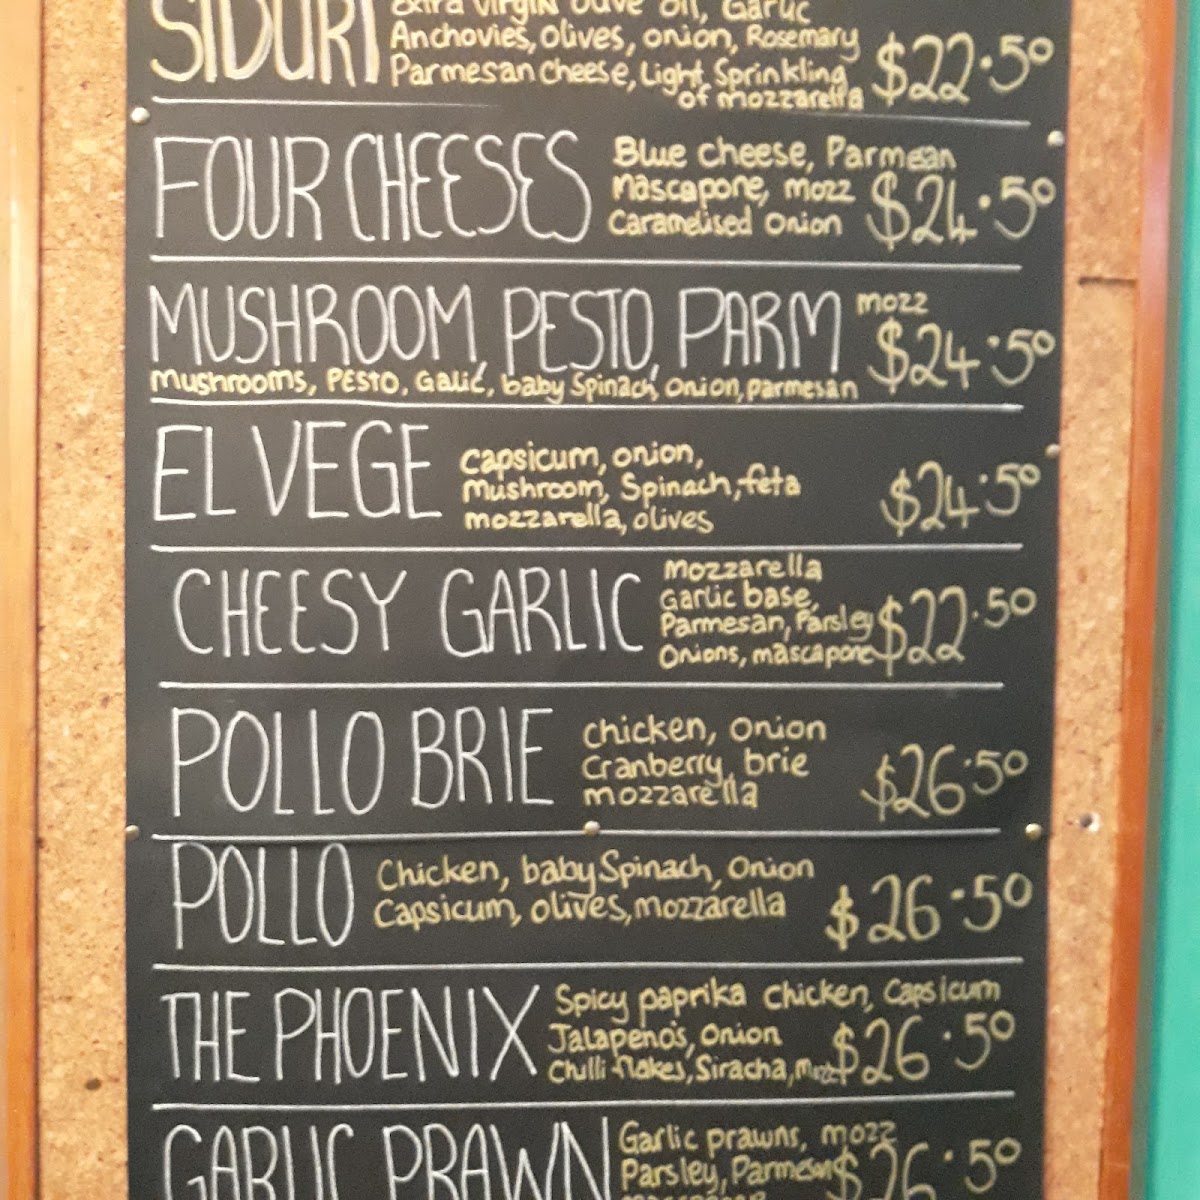 SIDURI
extra virgin olive oil, Garlic
Anchovies, olives, onion, Rosemary
Parmesan cheese, Light Sprinkling
of mozzarella
$22.50
FOUR CHEESES
Blue cheese, Parmesan
mascapone, mozz
Caramelised onion
$24.50
MUSHROOM, PESTO, PARM
mozz
$24.50
Mushrooms, PESTO, Galic, baby Spinach, onion, parmesan
EL VEGE
capsicum, onion,
Mushroom, Spinach, feta
mozzarella, olives
$24.50
CHEESY GARLIC
Mozzarella
Garlic base,
Parmesan, Parsley
Onions, mascapone
$22.50
POLLO BRIE
chicken, onion
Cranberry, brie
mozzarella
$26.50
POLLO
Chicken, baby Spinach, onion
Capsicum, olives, mozzarella
$26.50
THE PHOENIX
Spicy paprika chicken, Capsicum
Jalapeno's, onion
Chilli flakes, Siracha, Mozz
$26.50
GARLIC PRAWN
Garlic prawns, mozz
Parsley, Parmesan
$26.50